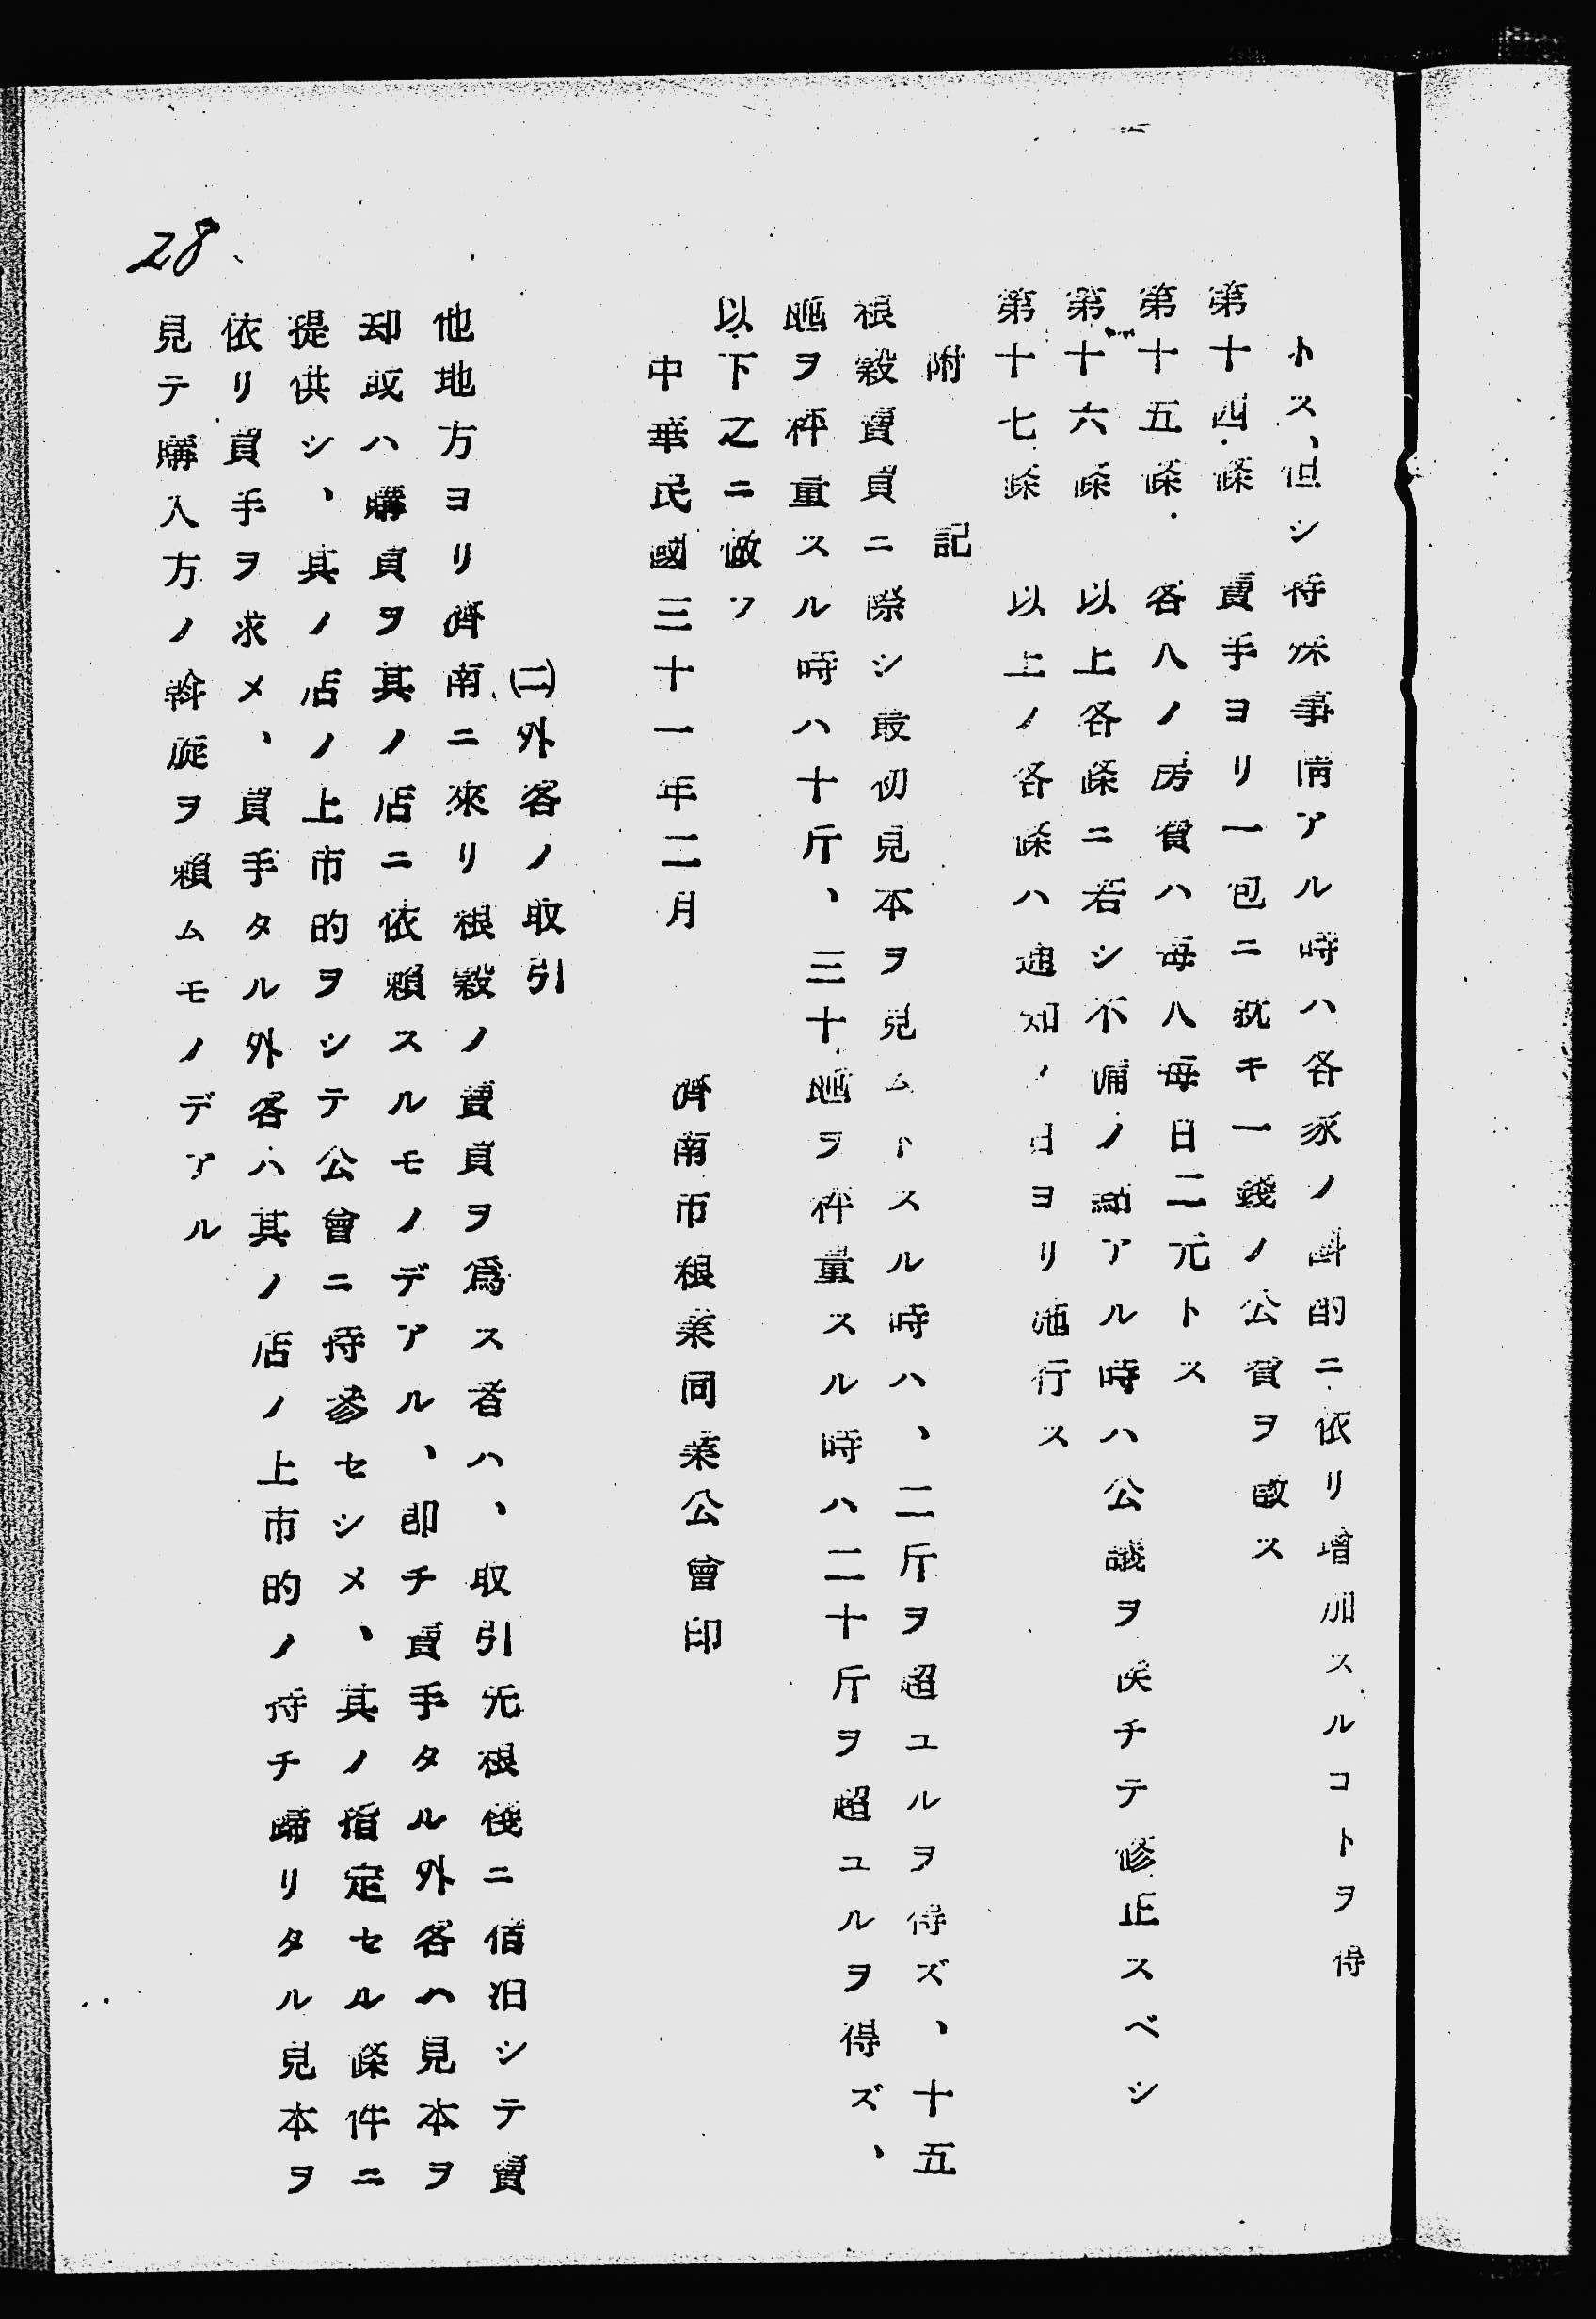 トス、但シ特殊事情アル時ハ各家ノ斟酌ニ依リ增加スルコトヲ得
第十四條　賣手ヨリ一包ニ就キ一錢ノ公費ヲ徵ス
第十五條　客人ノ房費ハ每人每日二元トス
第十六條　以上各條ニ若シ不備ノ點アル時ハ公議ヲ俟チテ修正スベシ
第十七條　以上ノ各條ハ通知ノ日ヨリ施行ス
附　記
糧穀賣買ニ際シ最初見本ヲ見ムトスル時ハ、二斤ヲ超ユルヲ得ズ、十五
瓲ヲ秤量スル時ハ十斤、三十瓲ヲ秤量スル時ハ二十斤ヲ超ユルヲ得ズ、
以下之ニ倣フ
中華民國三十一年二月　濟南市糧業同業公會印
(二)外客ノ取引
他地方ヨリ濟南ニ來リ糧穀ノ賣買ヲ爲ス者ハ、取引先糧棧ニ宿泊シテ賣
却或ハ購買ヲ其ノ店ニ依賴スルモノデアル、即チ賣手タル外客ハ見本ヲ
提供シ、其ノ店ノ上市的ヲシテ公會ニ持參セシメ、其ノ指定セル條件ニ
依リ買手ヲ求メ、買手タル外客ハ其ノ店ノ上市的ノ持チ歸リタル見本ヲ
見テ購入方ノ斡旋ヲ賴ムモノデアル
28